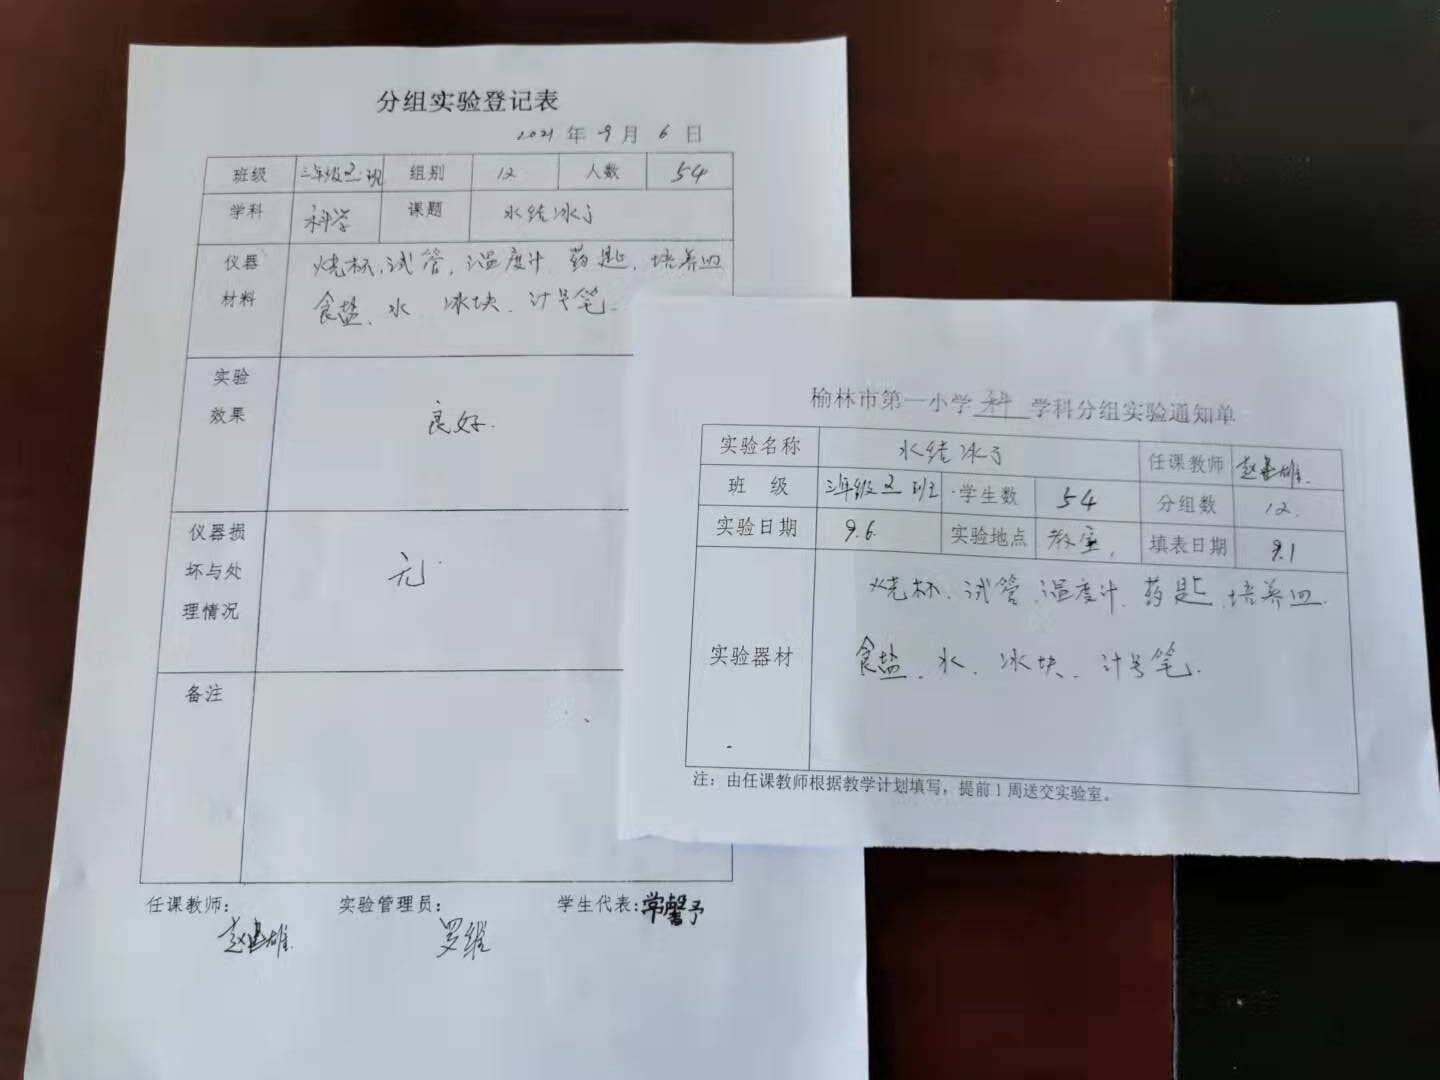 分组实验登记表
2021 年 9 月 6 日
班级 三年级五班 组别 12 人数 54
学科 科学 课题 水结冰了
仪器材料 烧杯、试管、温度计、药匙、培养皿
食盐、水、冰块、计号笔.
实验效果 良好.
仪器损坏与处理情况 无.
备注
任课教师: 实验管理员: 学生代表:常馨予
赵 雄 罗
榆林市第一小学 科 学科分组实验通知单
实验名称 水结冰了 任课教师 赵 雄.
班 级 三年级五班 学生数 54 分组数 12.
实验日期 9.6 实验地点 教室, 填表日期 9.1
实验器材 烧杯、试管、温度计、药匙、培养皿.
食盐、水、冰块、计号笔.
注：由任课教师根据教学计划填写，提前1周送交实验室。